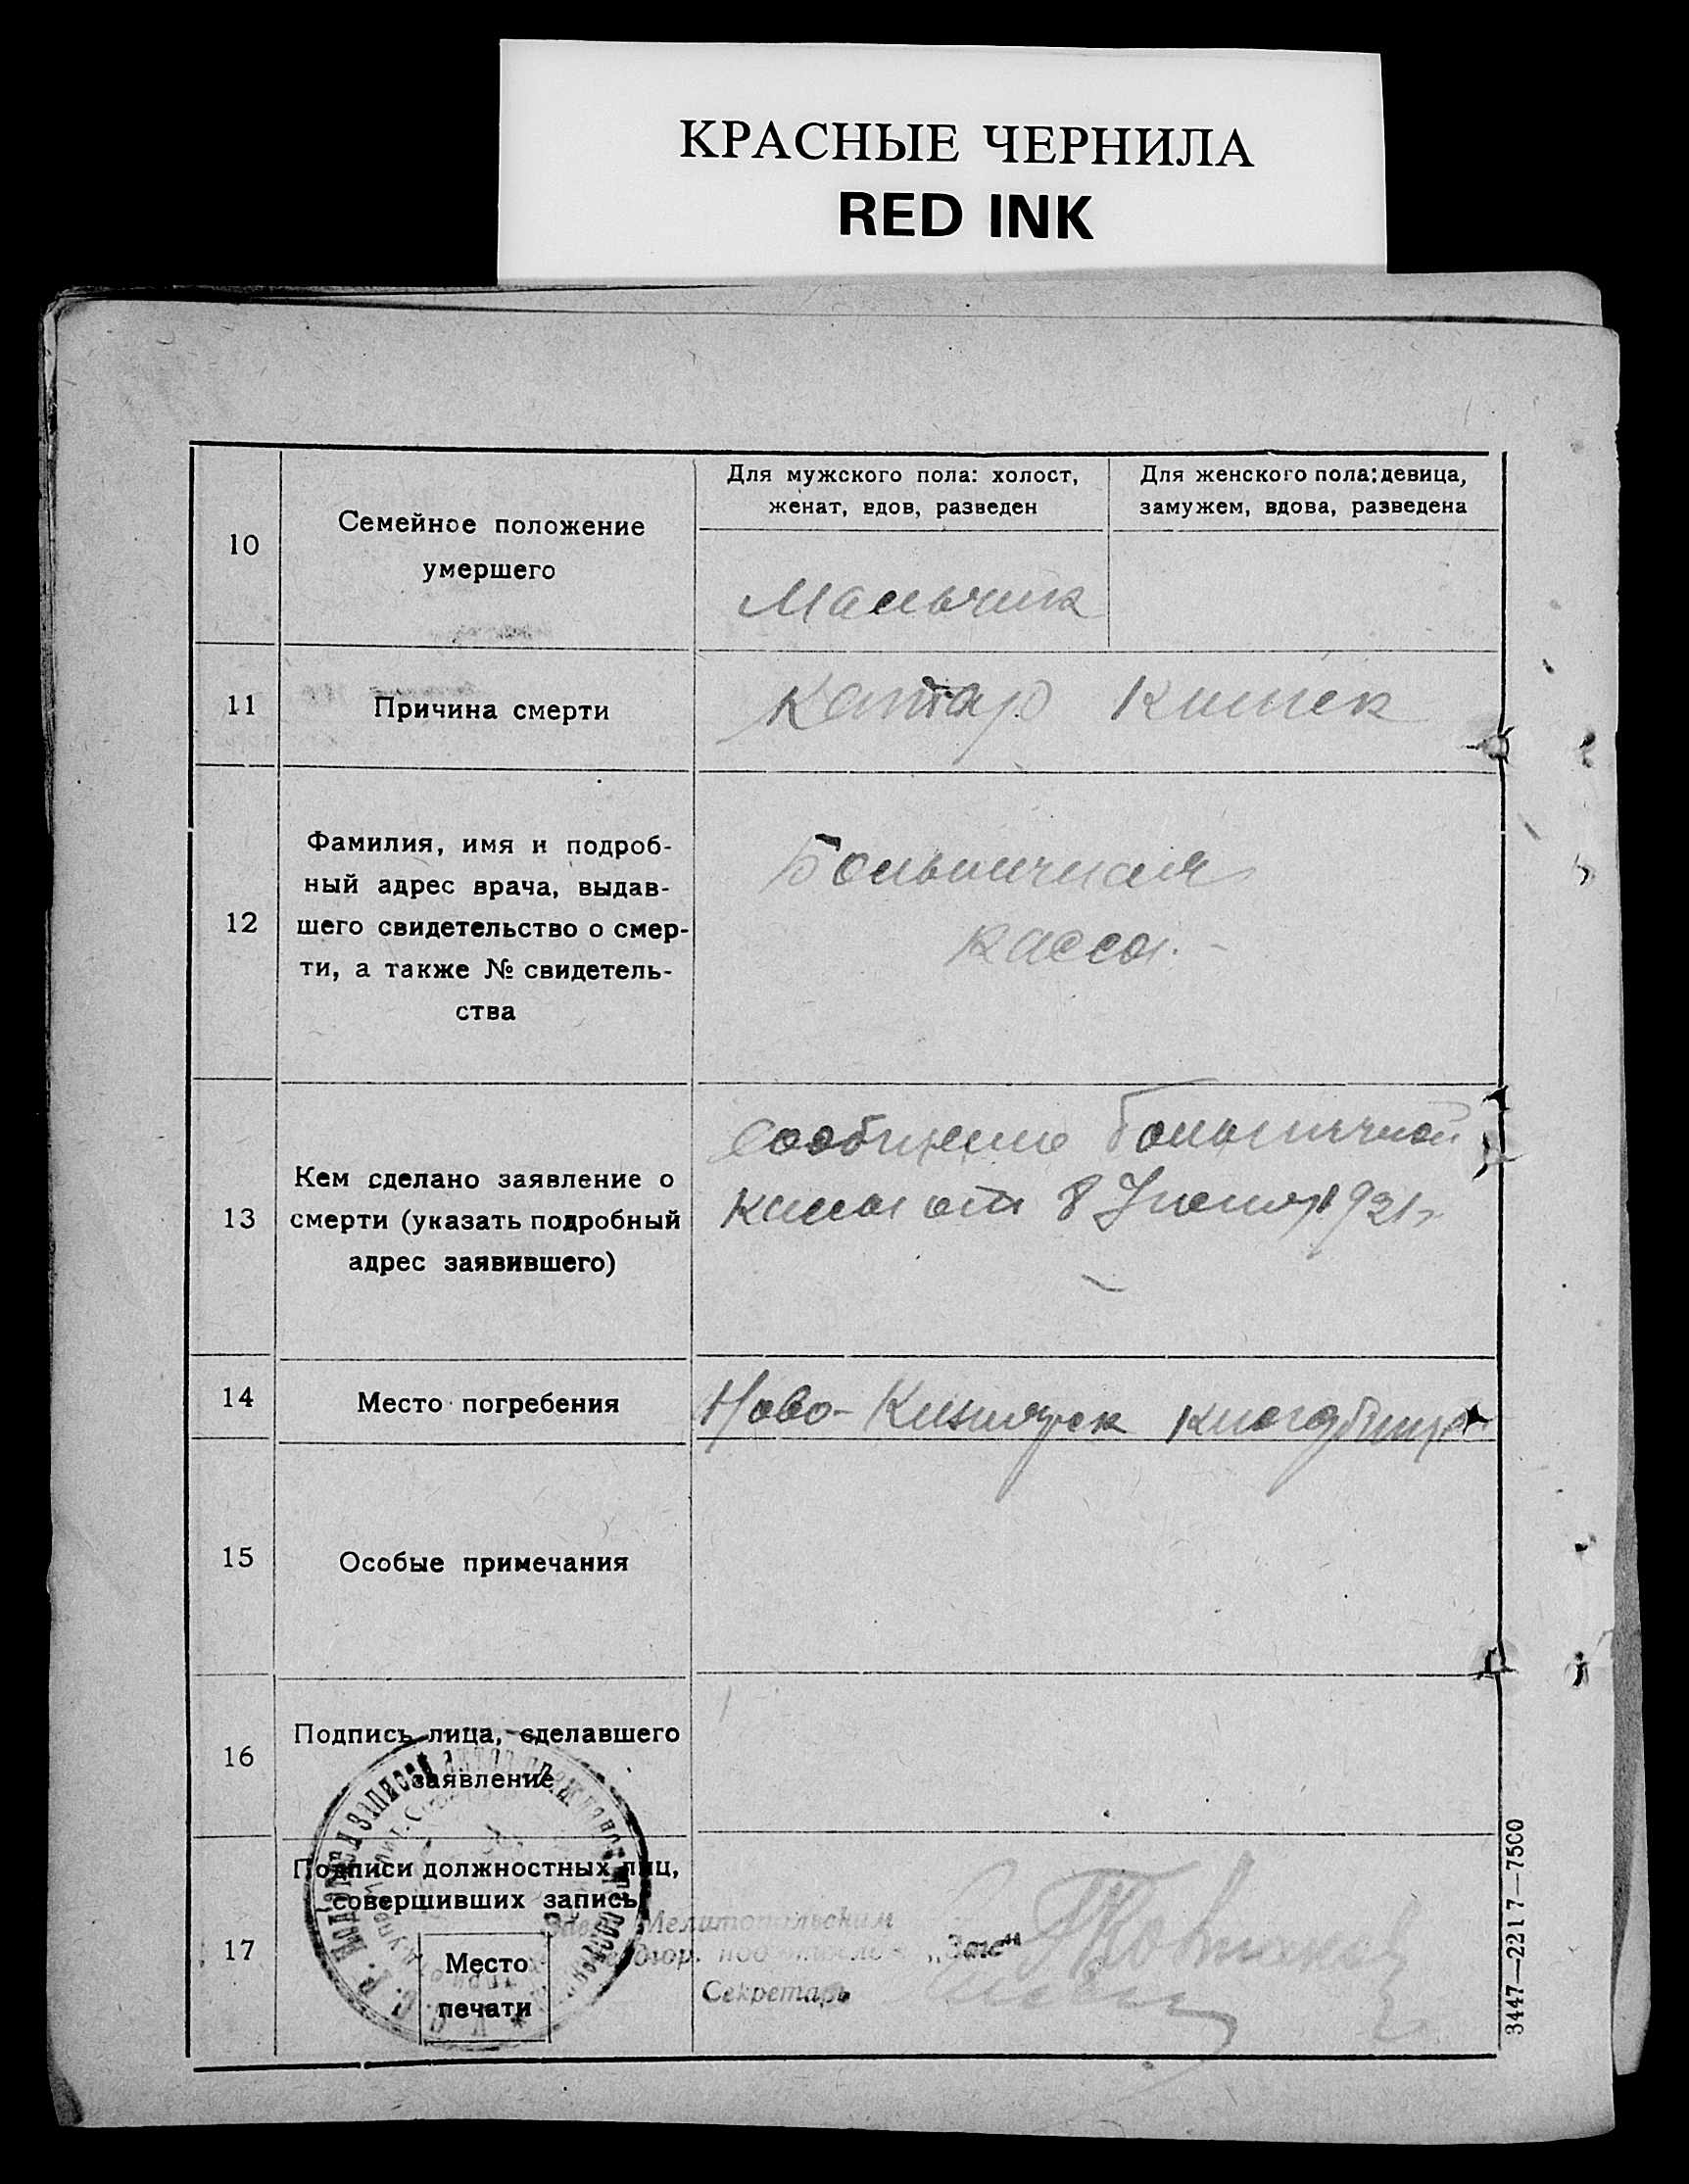 КРАСНЫЕ ЧЕРНИЛА
RED INK
10
Семейное положение
умершего
Для мужского пола: холост,
женат, вдов, разведен
Для женского пола: девица,
замужем, вдова, разведена
Мальчик
11
Причина смерти
Катар Кишек
12
Фамилия, имя и подроб-
ный адрес врача, выдав-
шего свидетельство о смер-
ти, а также № свидетель-
ства
Больничная
касса.
13
Кем сделано заявление о
смерти (указать подробный
адрес заявившего)
Сообщение больничной
кассы от 8 1921 г.
14
Место погребения
Ново- кладбище
15
Особые примечания
16
Подпись лица, сделавшего
заявление
17
Подписи должностных лиц,
совершивших запись
Место
печати
Мелитопольским
„Загс“
Секретарь
3447—2217—7500